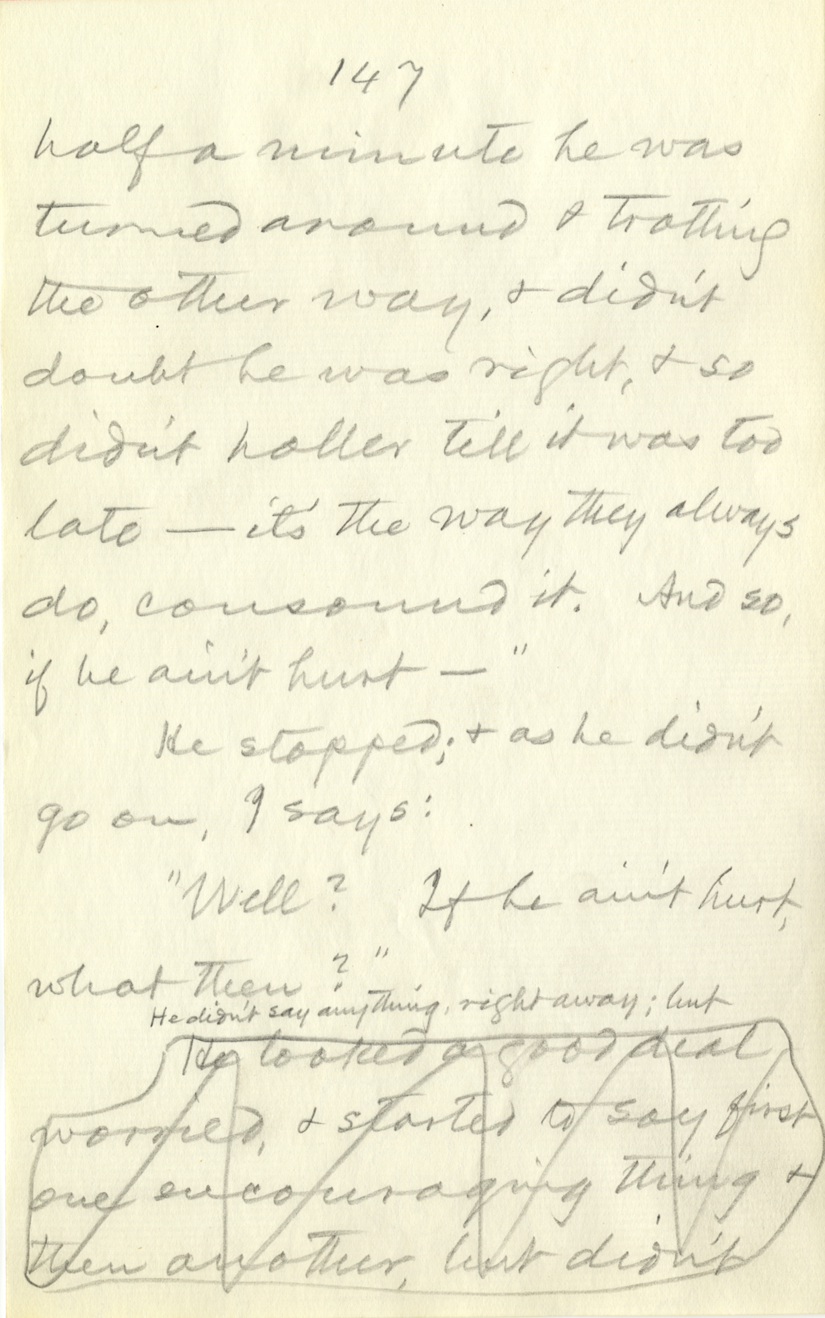 147
half a minute he was
turned around & trotting
the other way, & didn't
doubt he was right, & so
didn't holler till it was too
late — it's the way they always
do, consound it. And so,
if he ain't hurt — "
He stopped; & as he didn't
go on, I says:
"Well? If he ain't hurt,
what then?"
He didn't say anything, right away; but
He looked a good deal
worried, & started to say first
one encouraging thing &
then another, but didn't